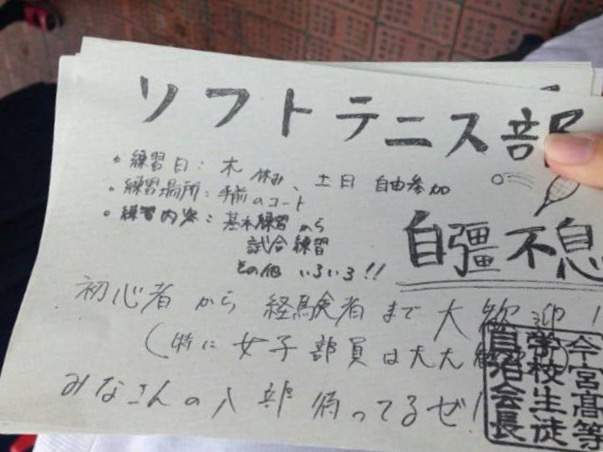 ソフトテニス部
・練習日：木休み、土日 自由参加
・練習場所：手前のコート
・練習内容：基本練習から
試合練習
その他 いろいろ!!
自彊不息
初心者から経験者まで大歓迎！
(特に女子部員は大大歓迎)
みなさんの入部待ってるぜ！
今宮高等
学校生徒
自治会長